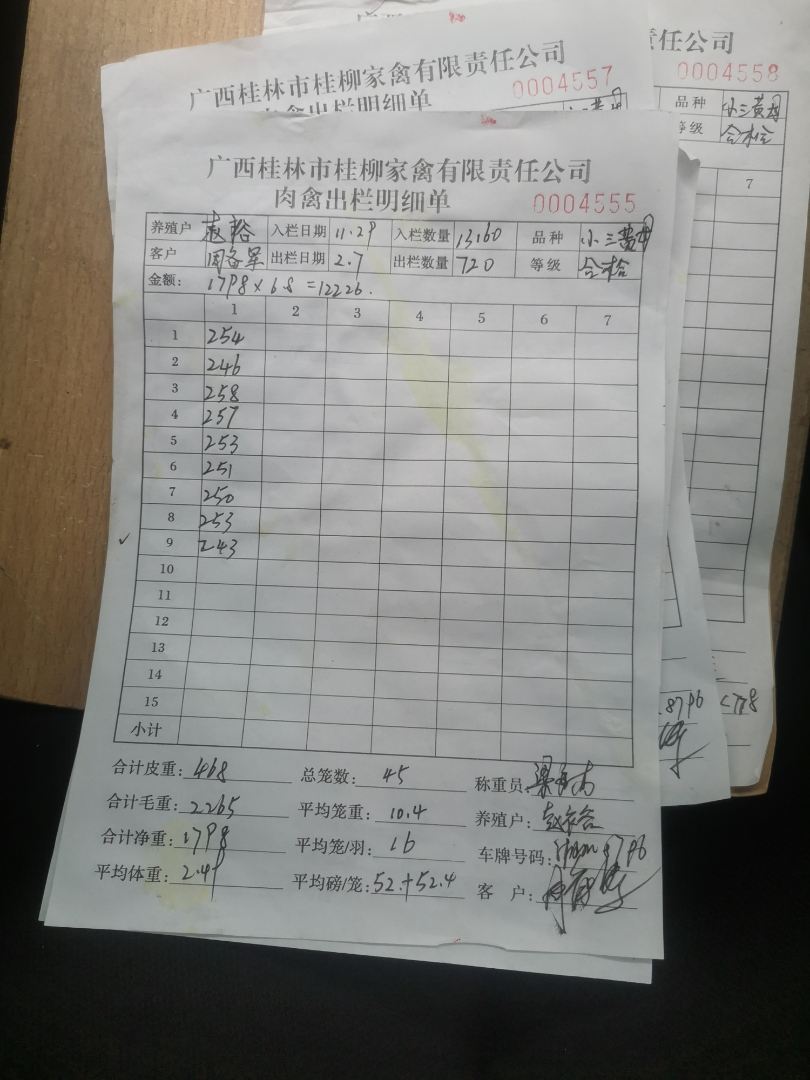 广西桂林市桂柳家禽有限责任公司
0004557
责任公司
0004558
品种 小三黄母
等级 合格
7
广西桂林市桂柳家禽有限责任公司
肉禽出栏明细单 0004555
养殖户 入栏日期 11.29 入栏数量 13160 品种 小三黄母
客户 出栏日期 2.7 出栏数量 720 等级 合格
金额: 1798×6.8=12226.
1 2 3 4 5 6 7
1 254
2 246
3 258
4 257
5 253
6 251
7 250
8 253
✓ 9 243
10
11
12
13
14
15
小计
合计皮重: 468 总笼数: 45 称重员:
合计毛重: 2265 平均笼重: 10.4 养殖户:
合计净重: 1798 平均笼/羽: 16 车牌号码:
平均体重: 2.49 平均磅/笼: 52.+52.4 客 户: